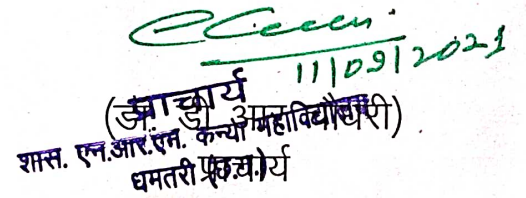 11/09/2021
प्राचार्य
(डॉ. डी. आर. चौधरी)
शास. एन.आर.एम. कन्या महाविद्यालय
धमतरी (छ.ग.)
प्राचार्य